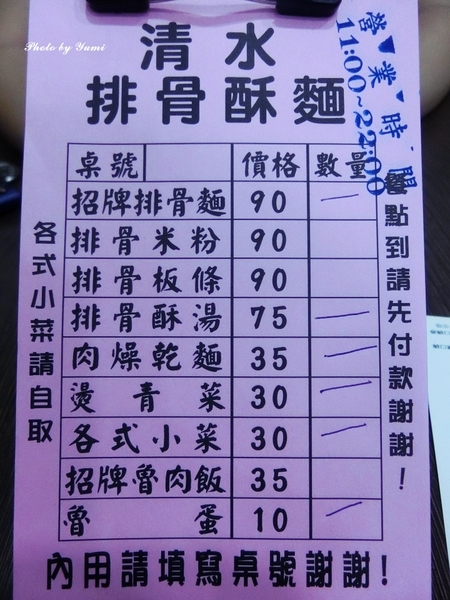 Photo by Yumi
清水
排骨酥麵
營業時間
11:00~22:00
桌號 價格 數量
招牌排骨麵 90 一
排骨米粉 90
排骨板條 90
排骨酥湯 75 一
肉燥乾麵 35 一
燙青菜 30 一
各式小菜 30 一
招牌魯肉飯 35
魯蛋 10 一
各式小菜請自取
餐點到請先付款謝謝!
內用請填寫桌號謝謝!